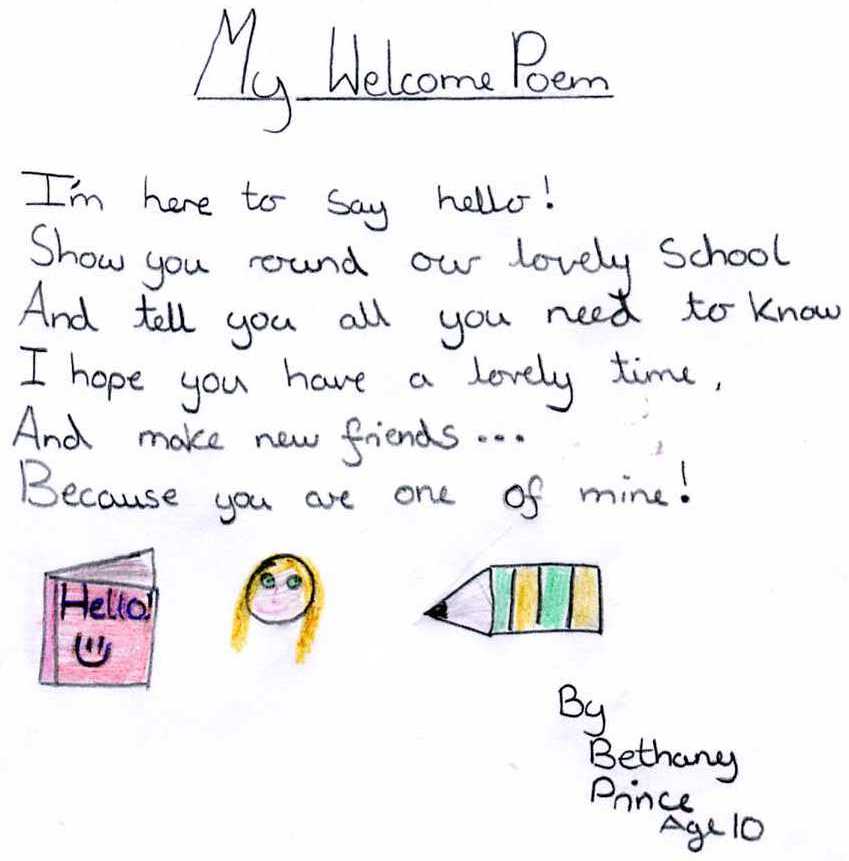 My Welcome Poem
I'm here to say hello!
Show you round our lovely School
And tell you all you need to know
I hope you have a lovely time,
And make new friends...
Because you are one of mine!
Hello!
By
Bethany
Prince
Age 10